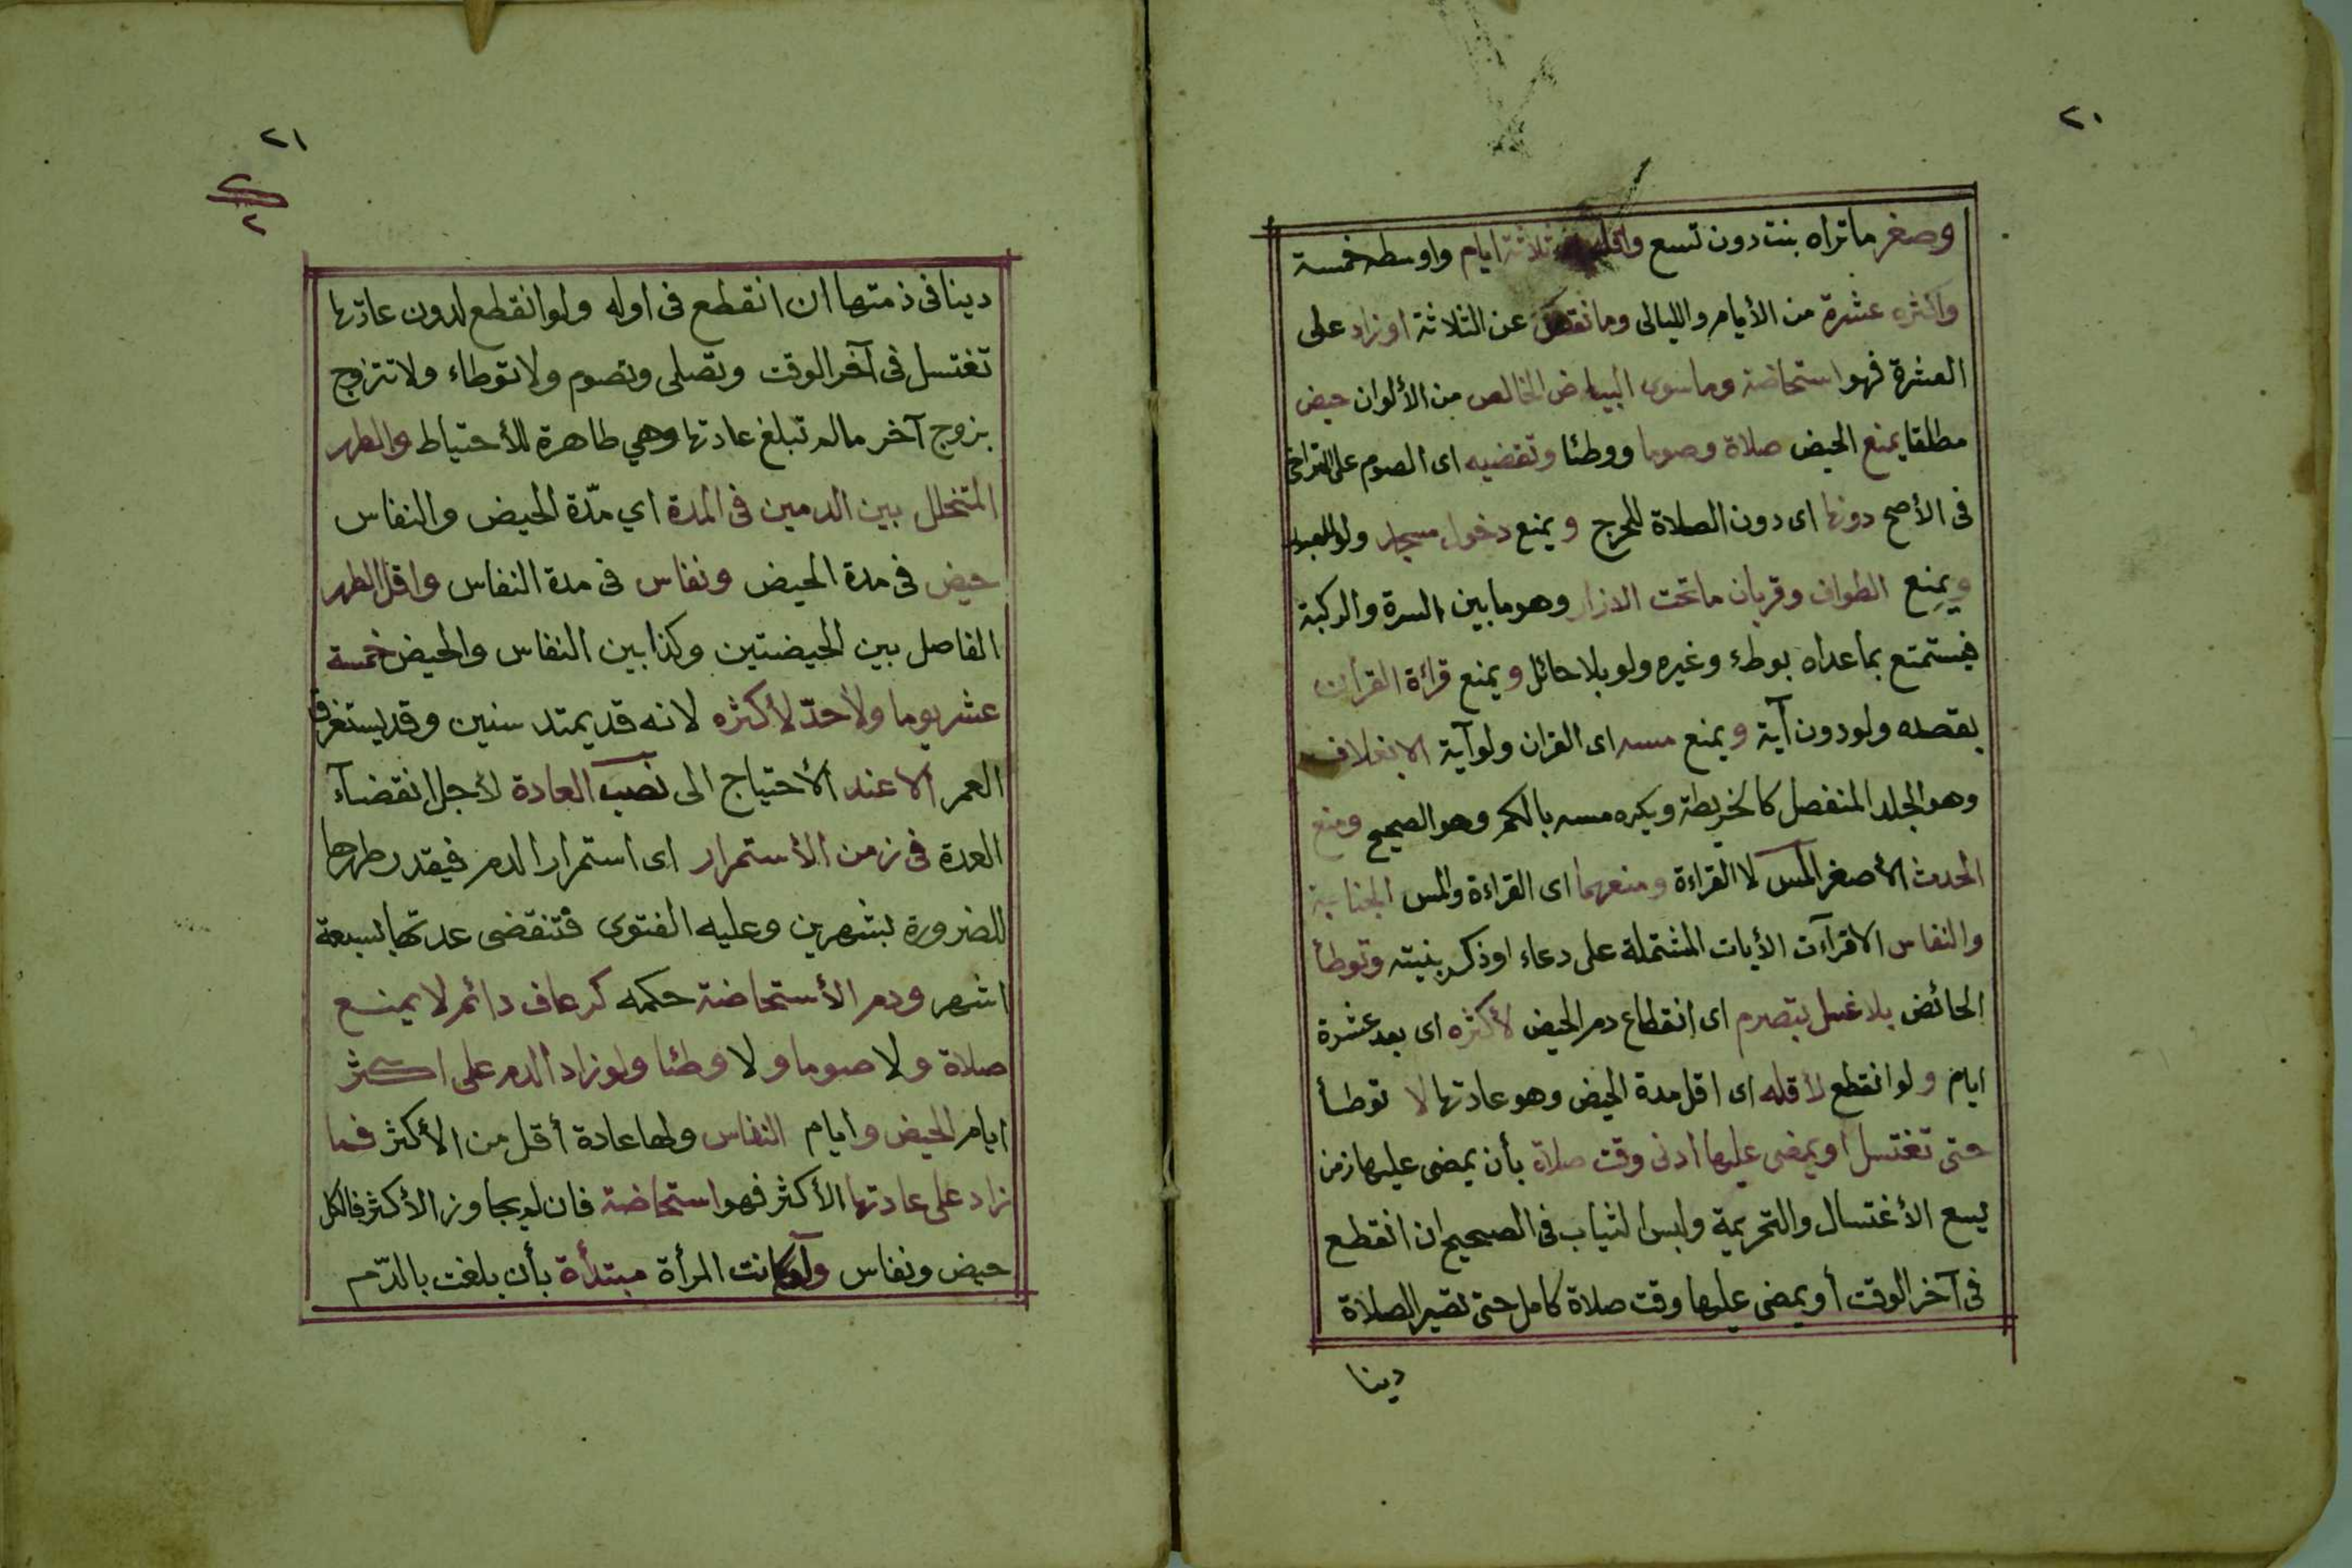 ٢٠
وصغر ماتراه بنت دون تسع واقله ثلاثة ايام واوسطه خمسة
واكثره عشرة من الأيام والليالى ومانقص عن الثلاثة اوزاد على
العشرة فهو استحاضة وماسوى البياض الخالص من الألوان حيض
مطلقا يمنع الحيض صلاة وصوما ووطئا وتقضيه اى الصوم على التراخى
فى الأصح دونها اى دون الصلاة للحرج ويمنع دخول مسجد ولو للعبور
ويمنع الطواف وقربان ماتحت الازار وهو مابين السرة والركبة
فيستمتع بماعداه بوطء وغيره ولو بلا حائل ويمنع قرائة القرأن
بقصده ولو دون آية ويمنع مسه اى القران ولو آية الا بغلاف
وهو الجلد المنفصل كالخريطة ويكره مسه بالكم وهو الصحيح ومنع
الحدث الأصغر المس لا القراءة ومنعهما اى القراءة والمس الجنابة
والنفاس الا قرآءت الأيات المشتملة على دعاء اوذكر بنيته وتوطأ
الحائض بلا غسل بتصرم اى انقطاع دم الحيض لأكثره اى بعد عشرة
ايام ولو انقطع لأقله اى اقل مدة الحيض وهو عادتها لا توطأ
حتى تغتسل او يمضى عليها ادنى وقت صلاة بأن يمضى عليها زمن
يسع الأغتسال والتحريمة ولبس الثياب فى الصحيح ان انقطع
فى آخر الوقت أو يمضى عليها وقت صلاة كامل حتى تصير الصلاة
دينا
٢١
٢
٢
دينا فى ذمتها ان انقطع فى اوله ولو انقطع لدون عادتها
تغتسل فى آخر الوقت وتصلى وتصوم ولا توطاء ولا تتزوج
بزوج آخر مالم تبلغ عادتها وهي طاهرة للأحتياط والطهر
المتخلل بين الدمين فى المدة اي مدّة الحيض والنفاس
حيض فى مدة الحيض ونفاس فى مدة النفاس واقل الطهر
الفاصل بين الحيضتين وكذا بين النفاس والحيض خمسة
عشر يوما ولأحدّ لأكثره لانه قد يمتد سنين وقد يستغرق
العمر الا عند الأحتياج الى نصب العادة لأجل انقضآء
العدة فى زمن الأستمرار اى استمرار الدم فيقدر طهرها
للضرورة بشهرين وعليه الفتوى فتنقضى عدتها بسبعة
اشهر ودم الأستحاضة حكمه كرعاف دائم لا يمنع
صلاة ولا صوما ولا وطئا ولو زاد الدم على اكثر
ايام الحيض وايام النفاس ولها عادة أقل من الأكثر فما
زاد على عادتها الأكثر فهو استحاضة فان لم يجاوز الأكثر فالكل
حيض ونفاس ولو كانت المرأة مبتدأة بأن بلغت بالدّم